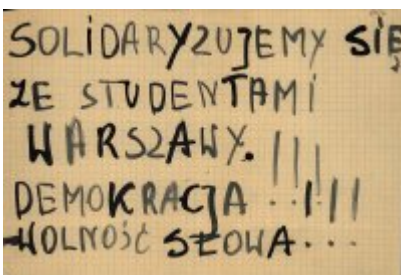 SOLiDARYZUJEMY SIĘ
ZE STUDENTAMi
WARSZAWY.!!!
DEMOKRACJA..!!!
WOLNOŚĆ SŁOWA...